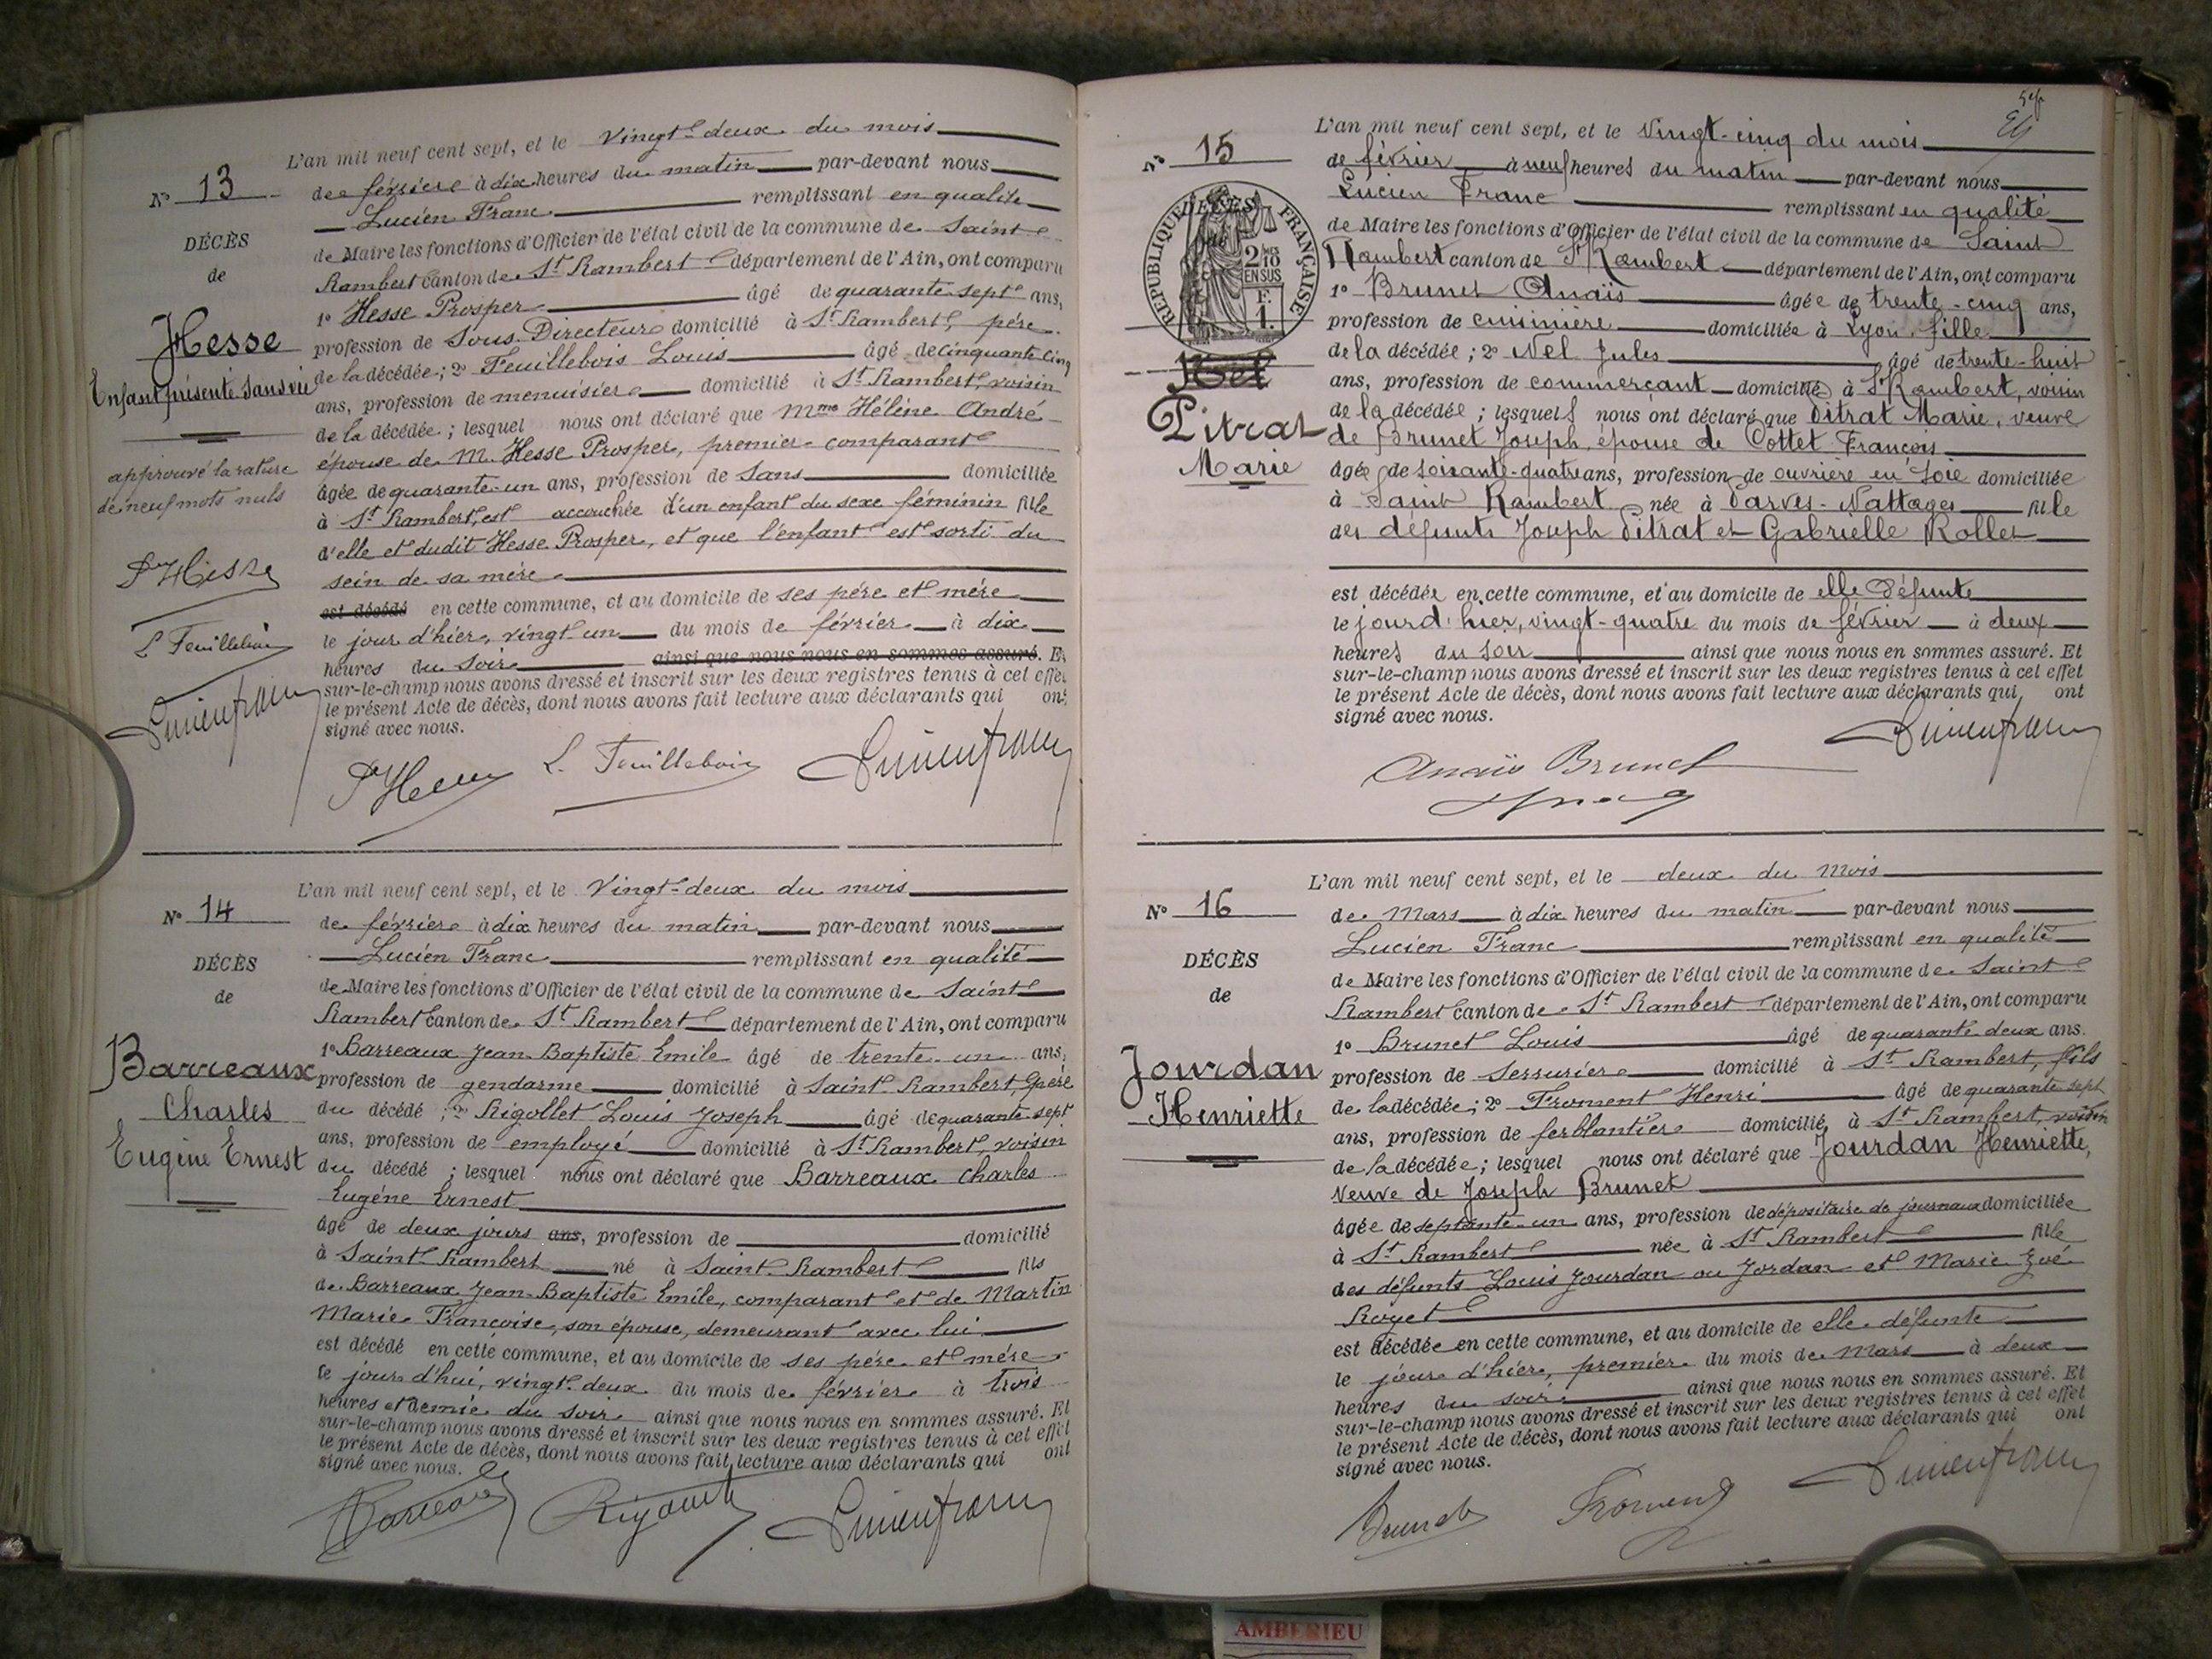 N° 13
DÉCÈS
de
Hesse
Enfant présenté sans vie
approuvé la rature
de neuf mots nuls
P. Hesse
L. Feuillebois
Lucien Franc
L'an mil neuf cent sept, et le vingt-deux du mois
de février à dix heures du matin par-devant nous
Lucien Franc remplissant en qualité
de Maire les fonctions d'Officier de l'état civil de la commune de Saint
Rambert canton de St Rambert département de l'Ain, ont comparu
1° Hesse Prosper âgé de quarante-sept ans,
profession de Sous-Directeur domicilié à St Rambert, père
de la décédée; 2° Feuillebois Louis âgé de cinquante cinq
ans, profession de menuisier domicilié à St Rambert, voisin
de la décédée; lesquel nous ont déclaré que Mme Hélène André
épouse de M. Hesse Prosper, premier comparant
âgée de quarante-un ans, profession de Sans domiciliée
à St Rambert, est accouchée d'un enfant du sexe féminin fille
d'elle et dudit Hesse Prosper, et que l'enfant est sorti du
sein de sa mère
est décédé en cette commune, et au domicile de ses père et mère
le jour d'hier, vingt un du mois de février à dix
heures du soir ainsi que nous nous en sommes assuré. Et
sur-le-champ nous avons dressé et inscrit sur les deux registres tenus à cet effet
le présent Acte de décès, dont nous avons fait lecture aux déclarants qui ont
signé avec nous.
P. Hesse L. Feuillebois Lucien Franc
N° 14
DÉCÈS
de
Barreaux
Charles
Eugène Ernest
L'an mil neuf cent sept, et le Vingt-deux du mois
de février à dix heures du matin par-devant nous
Lucien Franc remplissant en qualité
de Maire les fonctions d'Officier de l'état civil de la commune de Saint
Rambert canton de St Rambert département de l'Ain, ont comparu
1° Barreaux Jean-Baptiste Emile âgé de trente-un ans,
profession de gendarme domicilié à Saint-Rambert, père
du décédé; 2° Rigollet Louis Joseph âgé de quarante-sept
ans, profession de employé domicilié à St Rambert, voisin
du décédé; lesquel nous ont déclaré que Barreaux Charles
Eugène Ernest
âgé de deux jours ans, profession de domicilié
à Saint-Rambert né à Saint-Rambert fils
de Barreaux Jean-Baptiste Emile, comparant et de Martin
Marie Françoise, son épouse, demeurant avec lui
est décédé en cette commune, et au domicile de ses père et mère
le jour d'hui, vingt-deux du mois de février à trois
heures et demie du soir ainsi que nous nous en sommes assuré. Et
sur-le-champ nous avons dressé et inscrit sur les deux registres tenus à cet effet
le présent Acte de décès, dont nous avons fait lecture aux déclarants qui ont
signé avec nous.
Barreaux Lucien Franc
N° 15
RÉPUBLIQUE FRANÇAISE
2/10 EN SUS
F.
1.
DÉCÈS
de
Nel
Pitrat
Marie
L'an mil neuf cent sept, et le Vingt-cinq du mois
de février à neuf heures du matin par-devant nous
Lucien Franc remplissant en qualité
de Maire les fonctions d'Officier de l'état civil de la commune de Saint
Rambert canton de St Rambert département de l'Ain, ont comparu
1° Brunet Anaïs âgée de trente-cinq ans,
profession de cuisinière domiciliée à Lyon, fille
de la décédée; 2° Nel Jules âgé de trente-huit
ans, profession de commerçant domicilié à St Rambert, voisin
de la décédée; lesquels nous ont déclaré que Pitrat Marie, veuve
de Brunet Joseph, épouse de Cottet François
âgée de soixante-quatre ans, profession de ouvrière en soie domiciliée
à Saint Rambert née à Parves-Nattages fille
des défunts Joseph Pitrat et Gabrielle Rollet
est décédée en cette commune, et au domicile de elle défunte
le jour d'hier, vingt-quatre du mois de février à deux
heures du soir ainsi que nous nous en sommes assuré. Et
sur-le-champ nous avons dressé et inscrit sur les deux registres tenus à cet effet
le présent Acte de décès, dont nous avons fait lecture aux déclarants qui ont
signé avec nous.
Lucien Franc
Anaïs Brunet
N° 16
DÉCÈS
de
Jourdan
Henriette
L'an mil neuf cent sept, et le deux du mois
de Mars à dix heures du matin par-devant nous
Lucien Franc remplissant en qualité
de Maire les fonctions d'Officier de l'état civil de la commune de Saint
Rambert canton de St Rambert département de l'Ain, ont comparu
1° Brunet Louis âgé de quarante-deux ans.
profession de Serrurier domicilié à St Rambert, fils
de la décédée; 2° Froment Henri âgé de quarante sept
ans, profession de ferblantier domicilié à St Rambert, voisin
de la décédée; lesquel nous ont déclaré que Jourdan Henriette,
veuve de Joseph Brunet
âgée de septante-un ans, profession de dépositaire de journaux domiciliée
à St Rambert née à St Rambert fille
des défunts Louis Jourdan ou Jordan et Marie Zoé
Royet
est décédée en cette commune, et au domicile de elle défunte
le jour d'hier, premier du mois de Mars à deux
heures du soir ainsi que nous nous en sommes assuré. Et
sur-le-champ nous avons dressé et inscrit sur les deux registres tenus à cet effet
le présent Acte de décès, dont nous avons fait lecture aux déclarants qui ont
signé avec nous.
Brunet Froment Lucien Franc
AMBERIEU